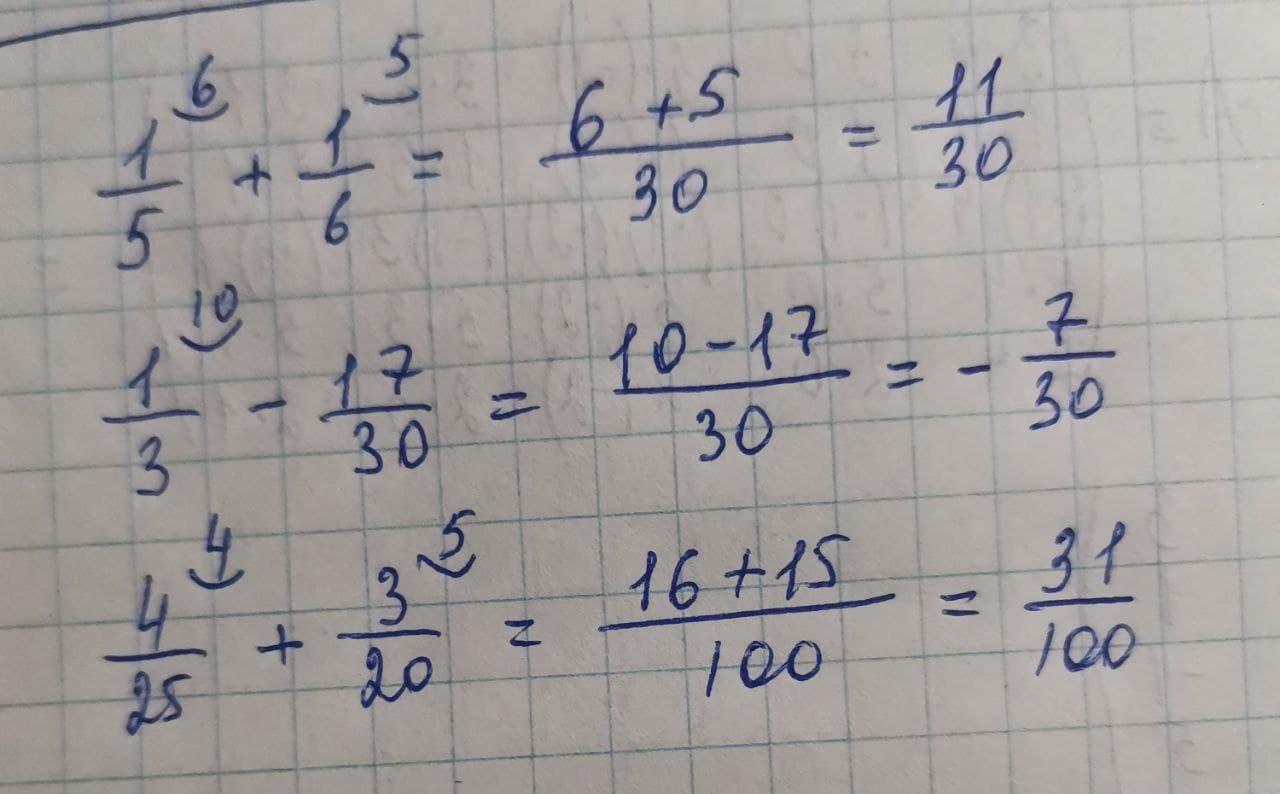 1/5 ⁶ + 1/6 ⁵ = 6+5/30 = 11/30
1/3 ¹⁰ - 17/30 = 10-17/30 = - 7/30
4/25 ⁴ + 3/20 ⁵ = 16+15/100 = 31/100